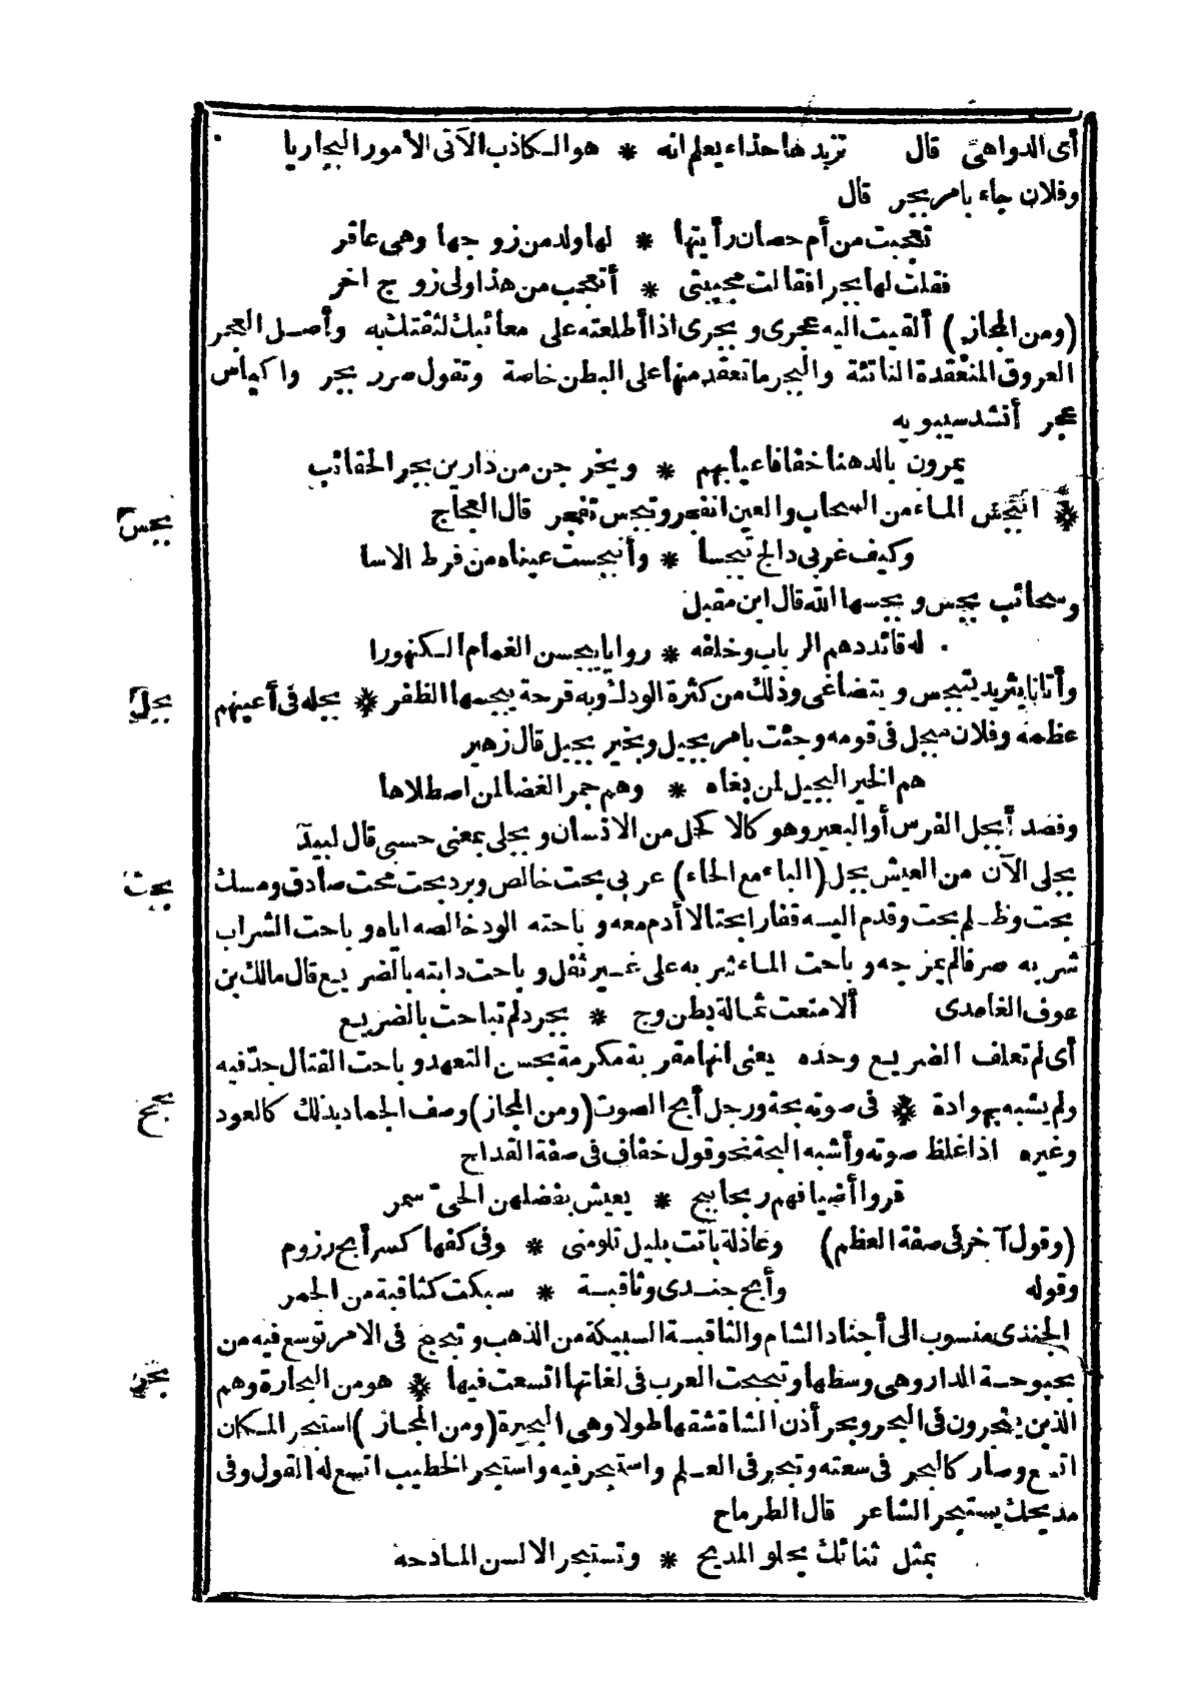 أى الدواهى قال تزيدها حذاء يعلم انه * هو الكاذب الآتى الأمور البجاريا
وفلان جاء بامر بجر قال
تعجبت من أم حصان رأيتها * لها ولد من زوجها وهى عاقر
فقلت لها بجرا فقالت مجيبتى * أتعجب من هذا ولى زوج اخر
(ومن المجاز) ألقيت اليه عجرى وبجرى اذا أطلعته على معائبك لثقتك به وأصل العجر
العروق المنعقدة الناتئة والبجر ما تعقد منها على البطن خاصة وتقول صرر بجر واكياس
عجر أنشد سيبويه
يمرون بالدهنا خفافا عيابهم * ويخرجن من دارين بجر الحقائب
بجس
* انبجس الماء من السحاب والعين انفجر وتبجس تفجر قال العجاج
وكيف غربى دالج تبجسا * وأنبجست عيناه من فرط الاسا
وسحائب بجس وبجسها الله قال ابن مقبل
له قائد دهم الرباب وخلفه * روايا يبجسن الغمام الكنهورا
بجل
وأتانا بثريد يتبجس ويتضاغى وذلك من كثرة الودك وبه قرحة يبجسها الظفر * بجله فى أعينهم
عظمه وفلان مبجل فى قومه وجئت بامر بجيل وبخير بجيل قال زهير
هم الخير البجيل لمن بغاه * وهم جمر الغضا لمن اصطلاها
وفصد أبجل الفرس أو البعير وهو كالاكحل من الانسان وبجلى بمعنى حسبى قال لبيد
بحت
بجلى الآن من العيش بجل (الباء مع الحاء) عربى بحت خالص وبرد بحت محت صادق ومسك
بحت وظلم بحت وقدم اليه قفارا بحتا لا أدم معه وباحته الود خالصه اياه وباحت الشراب
شربه صرفا لم يمزجه وباحت الماء شربه على غير ثفل وباحت دابته بالضريع قال مالك بن
عوف الغامدى ألا منعت ثمالة بطن وج * بجرد لم تباحت بالضريع
أى لم تعلف الضريع وحده يعنى انها مقربة مكرمة بحسن التعهد وباحت القتال جدّ فيه
بحح
ولم يشبه بهوادة * فى صوته بحة ورجل أبح الصوت (ومن المجاز) وصف الجماد بذلك كالعود
وغيره اذا غلظ صوته وأشبه البحة نحو قول خفاف فى صفة القداح
قروا أضيافهم ربحا ببح * يعيش بفضلهن الحىّ سمر
(وقول آخر فى صفة العظم) وعاذلة باتت بليل تلومنى * وفى كفها كسر أبح رزوم
وقوله وأبح جندى وثاقبة * سبكت كثاقبة من الجمر
الجندى منسوب الى أجناد الشام والثاقبة السبيكة من الذهب وتبحبح فى الامر توسع فيه من
بحر
بحبوحة الدار وهى وسطها وتبحبحت العرب فى لغاتها اتسعت فيها * هو من البحارة وهم
الذين يتجرون فى البحر وبحر أذن الشاة شقها طولا وهى البحيرة (ومن المجاز) استبحر المكان
اتسع وصار كالبحر فى سعته وتبحر فى العلم واستبحر فيه واستبحر الخطيب اتسع له القول وفى
مديحك يستبحر الشاعر قال الطرماح
بمثل ثنائك يحلو المديح * وتستبحر الالسن المادحه